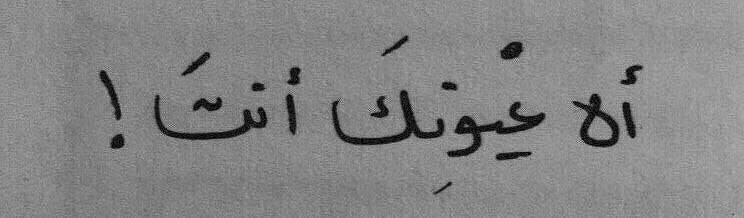 أه عْيونِكَ أنتَ !